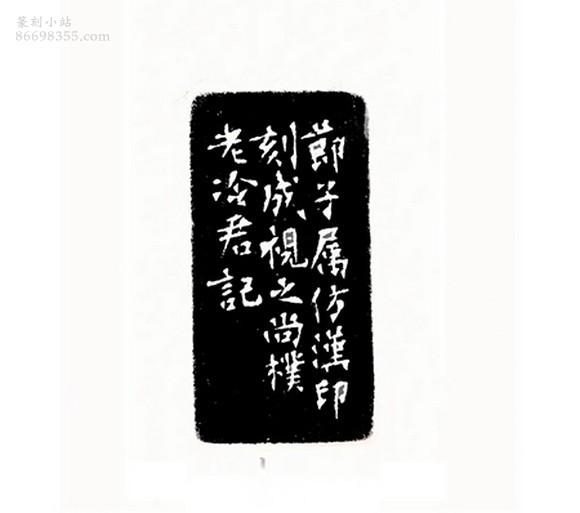 篆刻小站
86698355.com
節子属仿漢印
刻成視之尚樸
老泠君記